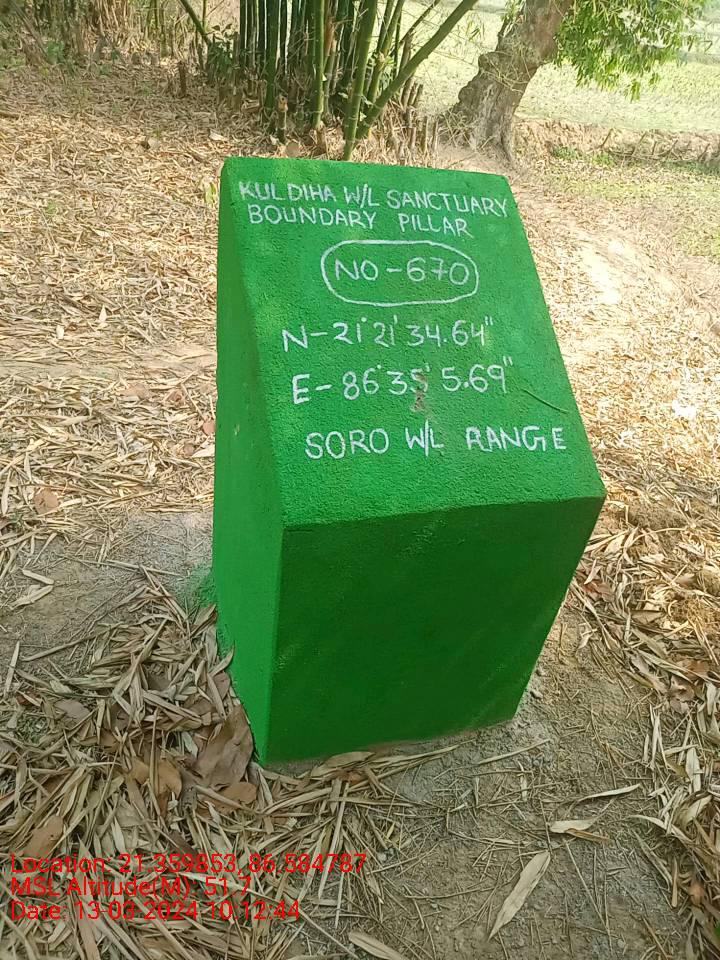 KULDIHA W/L SANCTUARY
BOUNDARY PILLAR
NO-670
N-21°21'34.64"
E-86°35'5.69"
SORO W/L RANGE
Location: 21.359853,86.584787
MSL Altitude(M): 51.7
Date: 13-03-2024 10:12:44